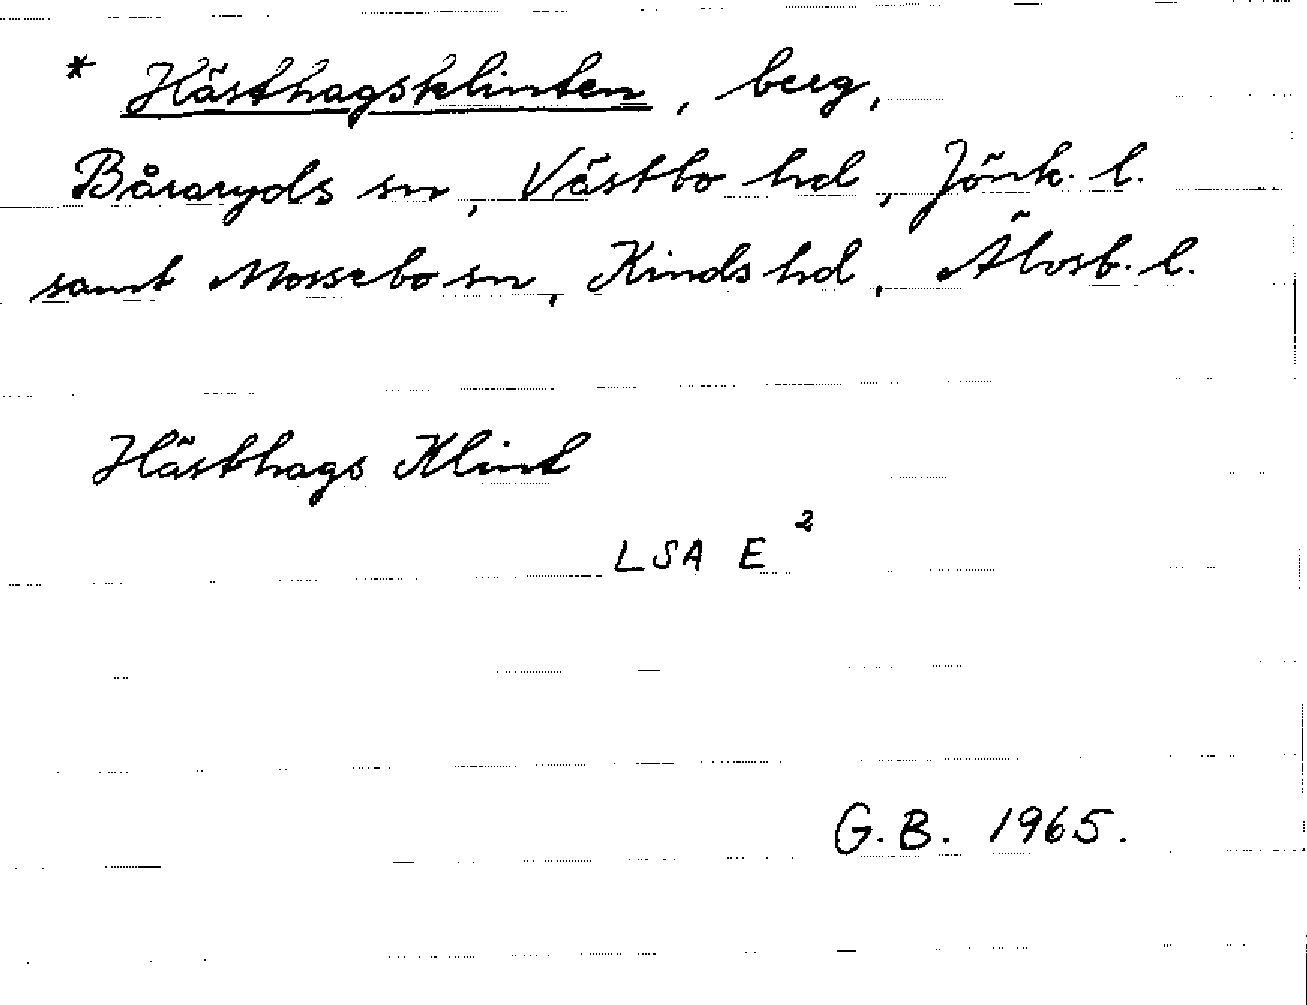 * Hästhagsklinten, berg,
Båraryds sn, Västbo hd, Jönk. l.
samt Mossebo sn, Kinds hd, Älvsb. l.
Hästhags Klint
LSA E²
G.B. 1965.